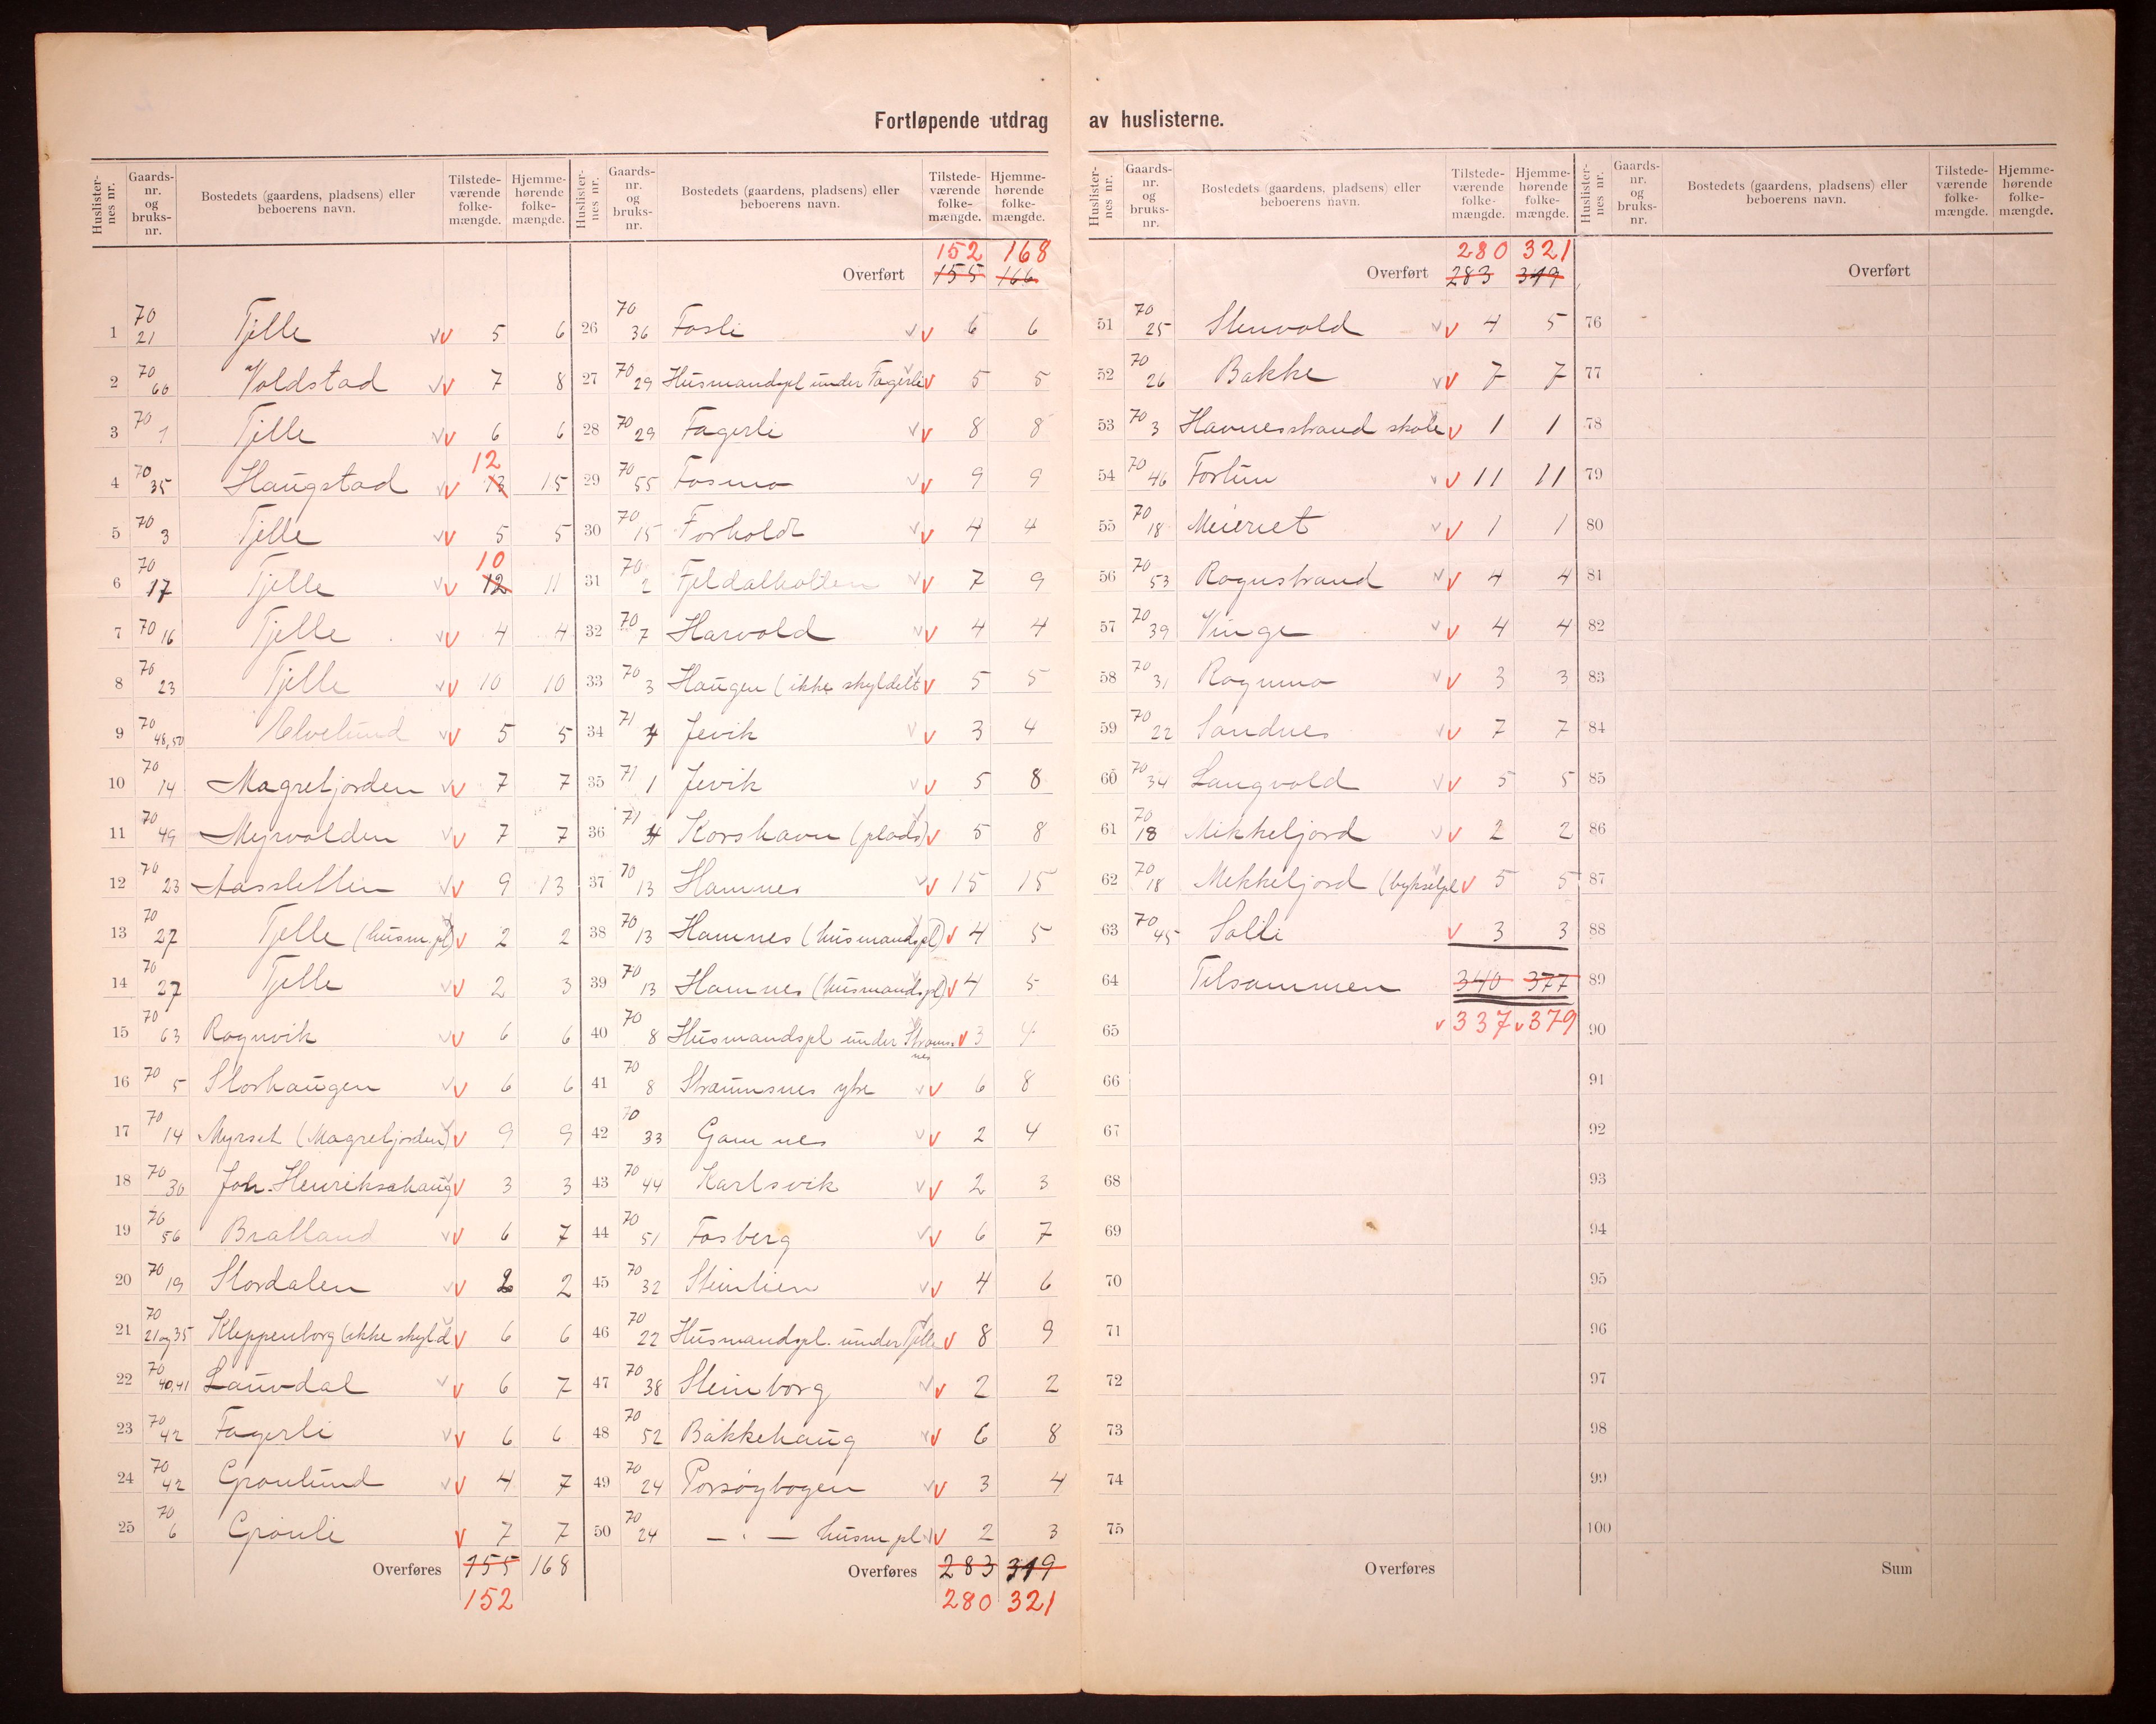 Fortløpende utdrag av huslisterne.
Huslister-nes nr. | Gaards-nr. og bruks-nr. | Bostedets (gaardens, pladsens) eller beboerens navn. | Tilstede-værende folke-mængde. | Hjemme-hørende folke-mængde.
1 70 21 Tjelle v v 5 6
2 70 60 Voldstad v v 7 8
3 70 1 Tjelle v v 6 6
4 70 35 Haugstad v v 13 12 15
5 70 3 Tjelle v v 5 5
6 70 17 Tjelle v v 12 10 11
7 70 16 Tjelle v v 4 4
8 70 23 Tjelle v v 10 10
9 70 48,50 Elvelund v v 5 5
10 70 14 Magretjorden v v 7 7
11 70 49 Myrvolden v v 7 7
12 70 23 Aassletten v v 9 13
13 70 27 Tjelle (husm.pl) v 2 2
14 70 27 Tjelle v v 2 3
15 70 63 Rognvik v v 6 6
16 70 5 Storhaugen v v 6 6
17 70 14 Myrset (Magretjorden) v 9 9
18 70 30 Joh. Henrikschaug v 3 3
19 70 56 Bratland v v 6 7
20 70 19 Stordalen v v 2 2
21 70 21 og 35 Kleppenborg (ikke skyld v 6 6
22 70 40,41 Lauvdal v v 6 7
23 70 42 Fagerli v v 6 6
24 70 42 Grønlund v v 4 7
25 70 6 Grønli v 7 7
Overføres 155 168
152
Huslister-nes nr. | Gaards-nr. og bruks-nr. | Bostedets (gaardens, pladsens) eller beboerens navn. | Tilstede-værende folke-mængde. | Hjemme-hørende folke-mængde.
152 168
Overført 155 166
26 70 36 Fosli v v 6 6
27 70 29 Husmandspl under Fagerli v 5 5
28 70 29 Fagerli v v 8 8
29 70 55 Fosmo v v 9 9
30 70 15 Forholdt v v 4 4
31 70 2 Fjeldalholten v v 7 9
32 70 7 Harvold v v 4 4
33 70 3 Haugen (ikke skyldelt v 5 5
34 71 4 Jevik v v 3 4
35 71 1 Jevik v v 5 8
36 71 4 Korshavn (plads) v 5 8
37 70 13 Hamnes v v 15 15
38 70 13 Hamnes (husmandspl) v 4 5
39 70 13 Hamnes (husmandspl) v 4 5
40 70 8 Husmandspl under Straumsnes v 3 4
41 70 8 Straumsnes ytre v v 6 8
42 70 33 Gamnes v v 2 4
43 70 44 Karlsvik v v 2 3
44 70 51 Fosberg v v 6 7
45 70 32 Steinlien v v 4 6
46 70 22 Husmandspl. under Tjelle v 8 9
47 70 38 Steinborg v v 2 2
48 70 52 Bakkehaug v v 6 8
49 70 24 Porsøybogen v v 3 4
50 70 24 — " — husm pl v v 2 3
Overføres 283 319
280 321
Huslister-nes nr. | Gaards-nr. og bruks-nr. | Bostedets (gaardens, pladsens) eller beboerens navn. | Tilstede-værende folke-mængde. | Hjemme-hørende folke-mængde.
280 321
Overført 283 319
51 70 25 Stenvold v v 4 5
52 70 26 Bakke v v 7 7
53 70 3 Havnesstrand skole v 1 1
54 70 46 Fortun v v 11 11
55 70 18 Meieriet v v 1 1
56 70 53 Rognstrand v v 4 4
57 70 39 Vinge v v 4 4
58 70 31 Rognmo v v 3 3
59 70 22 Sandnes v v 7 7
60 70 34 Langvold v v 5 5
61 70 18 Mikkeljord v v 2 2
62 70 18 Mekkeljord (bykselpl v 5 5
63 70 45 Solli v 3 3
64 Tilsammen 340 377
65 v 337 v 379
66
67
68
69
70
71
72
73
74
75
Overføres
Huslister-nes nr. | Gaards-nr. og bruks-nr. | Bostedets (gaardens, pladsens) eller beboerens navn. | Tilstede-værende folke-mængde. | Hjemme-hørende folke-mængde.
Overført
76
77
78
79
80
81
82
83
84
85
86
87
88
89
90
91
92
93
94
95
96
97
98
99
100
Sum